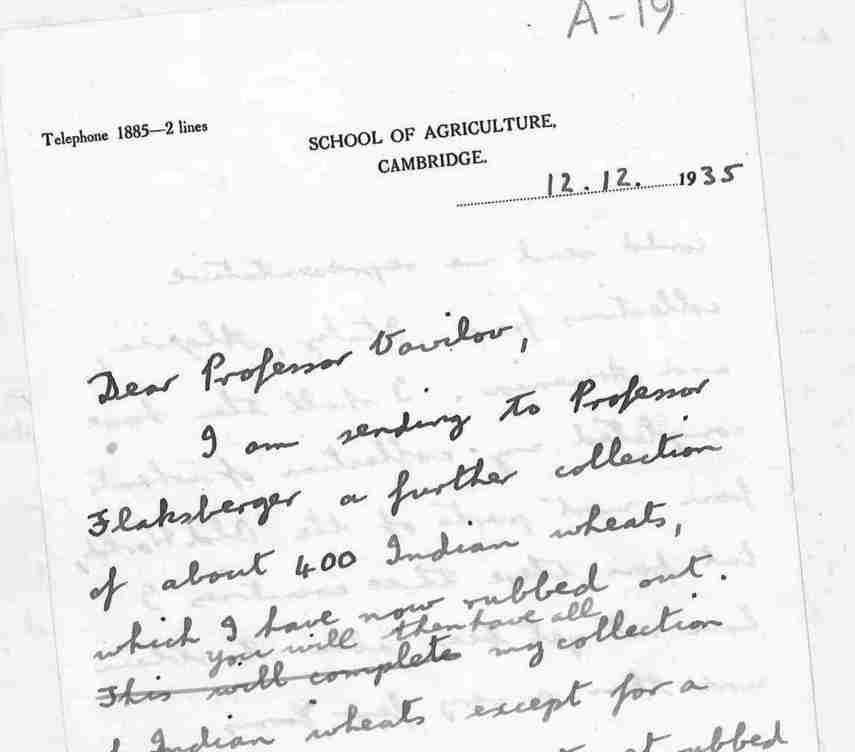 A-19
Telephone 1885—2 lines
SCHOOL OF AGRICULTURE,
CAMBRIDGE.
12.12. 1935
Dear Professor Vavilov,
I am sending to Professor
Flaksberger a further collection
of about 400 Indian wheats,
which I have now rubbed out.
you will then have all
This will complete my collection
of Indian wheats except for a
rubbed